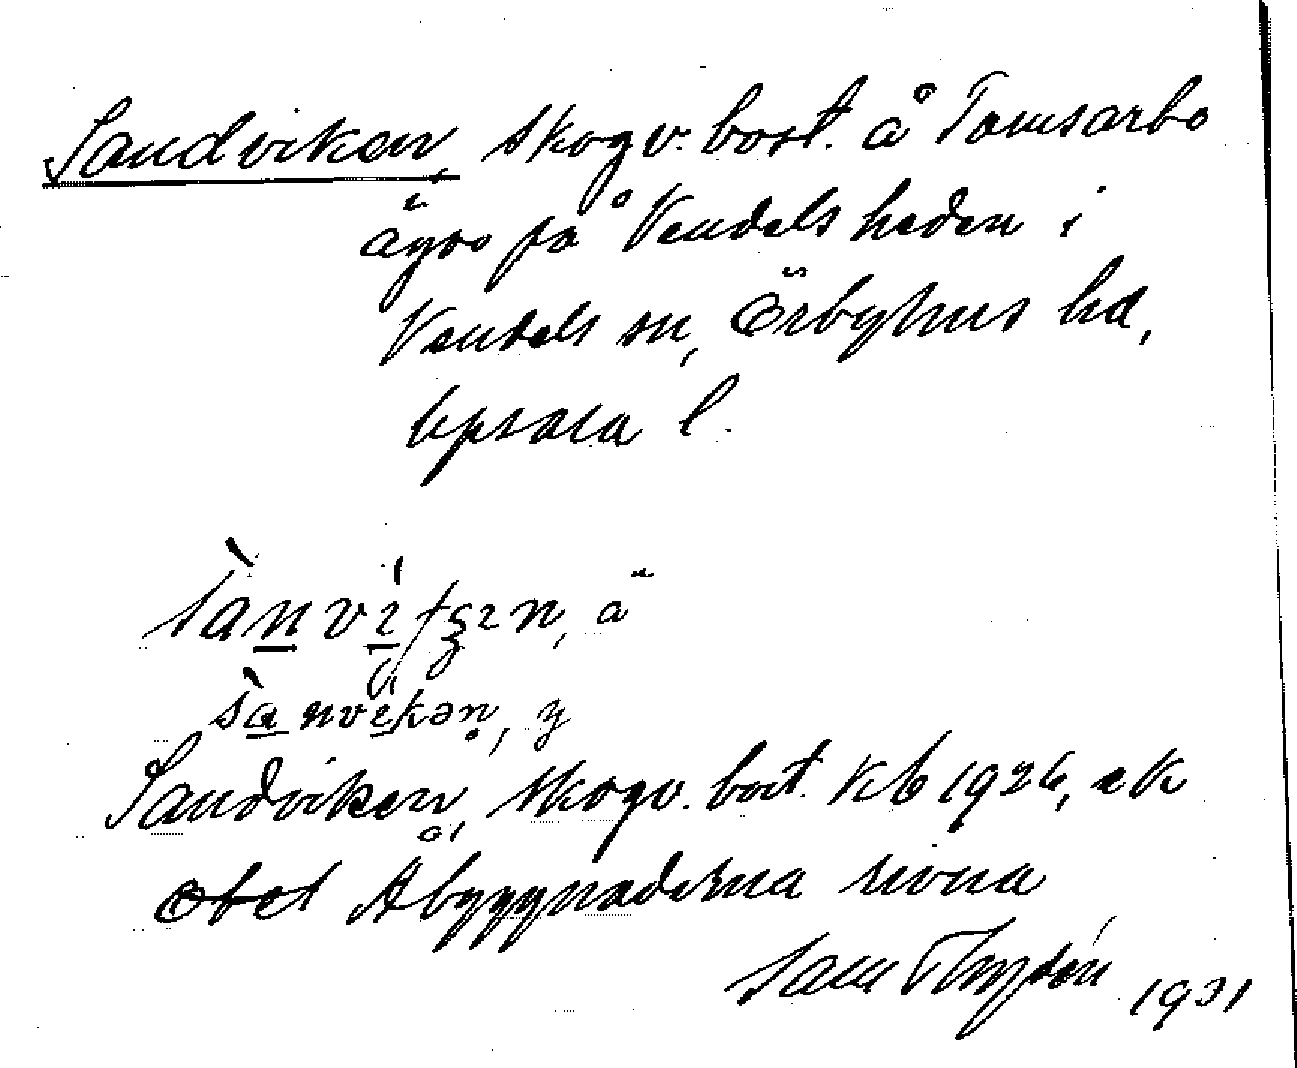 Sandviken, skogv. bost. å Tomsarbo
ägor på Vendels heden i
Vendels sn, Örbyhus hd,
Upsala l.
sànvíkən, y
Sandviken, skogv. bost. Kb 1926, ek
obet Åbyggnaderna rivna
1931